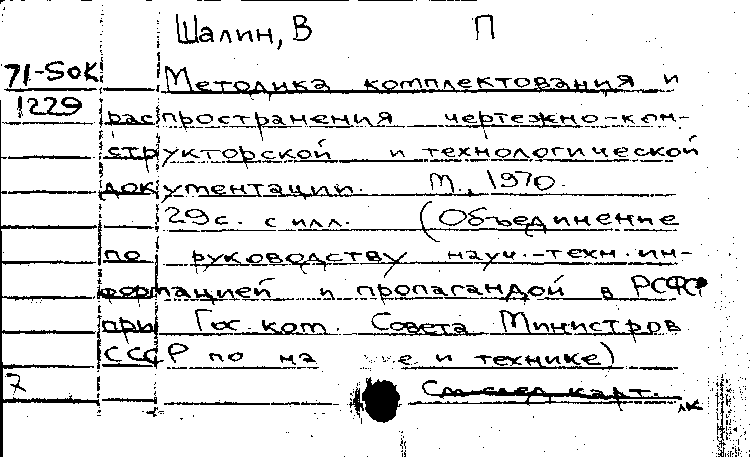 Шалин, В П
71-SOK Методика комплектования и
1229 распространения чертежно-кон-
структорской и технологической
документации. М., 1970.
29с. с илл. (Объединение
по руководству науч.-техн. ин-
формацией и пропагандой в РСФСР
при Гос. ком. Совета Министров
СССР по на е и технике)
7 См след. карт.